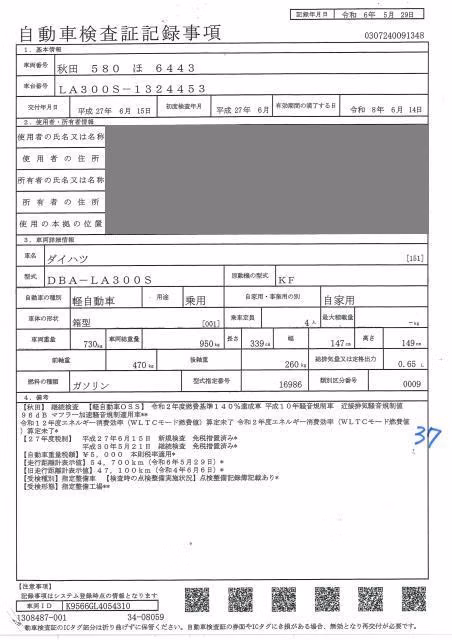 記録年月日 令和 6年 5月 29日
自動車検査証記録事項
0307240091348
1. 基本情報
車両番号 秋田 580 ほ 6443
車台番号 LA300S-1324453
交付年月日 平成27年 6月 15日 初度検査年月 平成27年 6月 有効期間の満了する日 令和 8年 6月 14日
2. 使用者・所有者情報
使用者の氏名又は名称
使用者の住所
所有者の氏名又は名称
所有者の住所
使用の本拠の位置
3. 車両詳細情報
車名 ダイハツ [151]
型式 DBA-LA300S 原動機の型式 KF
自動車の種別 軽自動車 用途 乗用 自家用・事業用の別 自家用
車体の形状 箱型 [001] 乗車定員 4人 最大積載量 -kg
車両重量 730kg 車両総重量 950kg 長さ 339cm 幅 147cm 高さ 149cm
前軸重 470kg 後軸重 260kg 総排気量又は定格出力 0.65 L
燃料の種類 ガソリン 型式指定番号 16986 類別区分番号 0009
4. 備考
【秋田】 継続検査 【軽自動車OSS】 令和2年度燃費基準140%達成車 平成10年騒音規制車 近接排気騒音規制値
96dB マフラー加速騒音規制適用車**
令和12年度エネルギー消費効率（WLTCモード燃費値）算定未了 令和2年度エネルギー消費効率（WLTCモード燃費値
）算定未了*
【27年度税制】 平成27年6月15日 新規検査 免税措置済み*
平成30年5月21日 継続検査 免税措置済み*
【自動車重量税額】￥5,000 本則税率適用*
【走行距離計表示値】54,700km（令和6年5月29日）*
【旧走行距離計表示値】47,100km（令和4年6月6日）*
【受検種別】指定整備車 【検査時の点検整備実施状況】点検整備記録簿記載あり*
【受検形態】指定整備工場**
37
【注意事項】
記録事項はシステム登録時点の情報となります
車両ID K9566GL4054310
1308487-001 34-08059
自動車検査証のICタグ部分は折り曲げずに保管ください。自動車検査証の券面やICタグにき損がある場合、無効となり再交付が必要です。